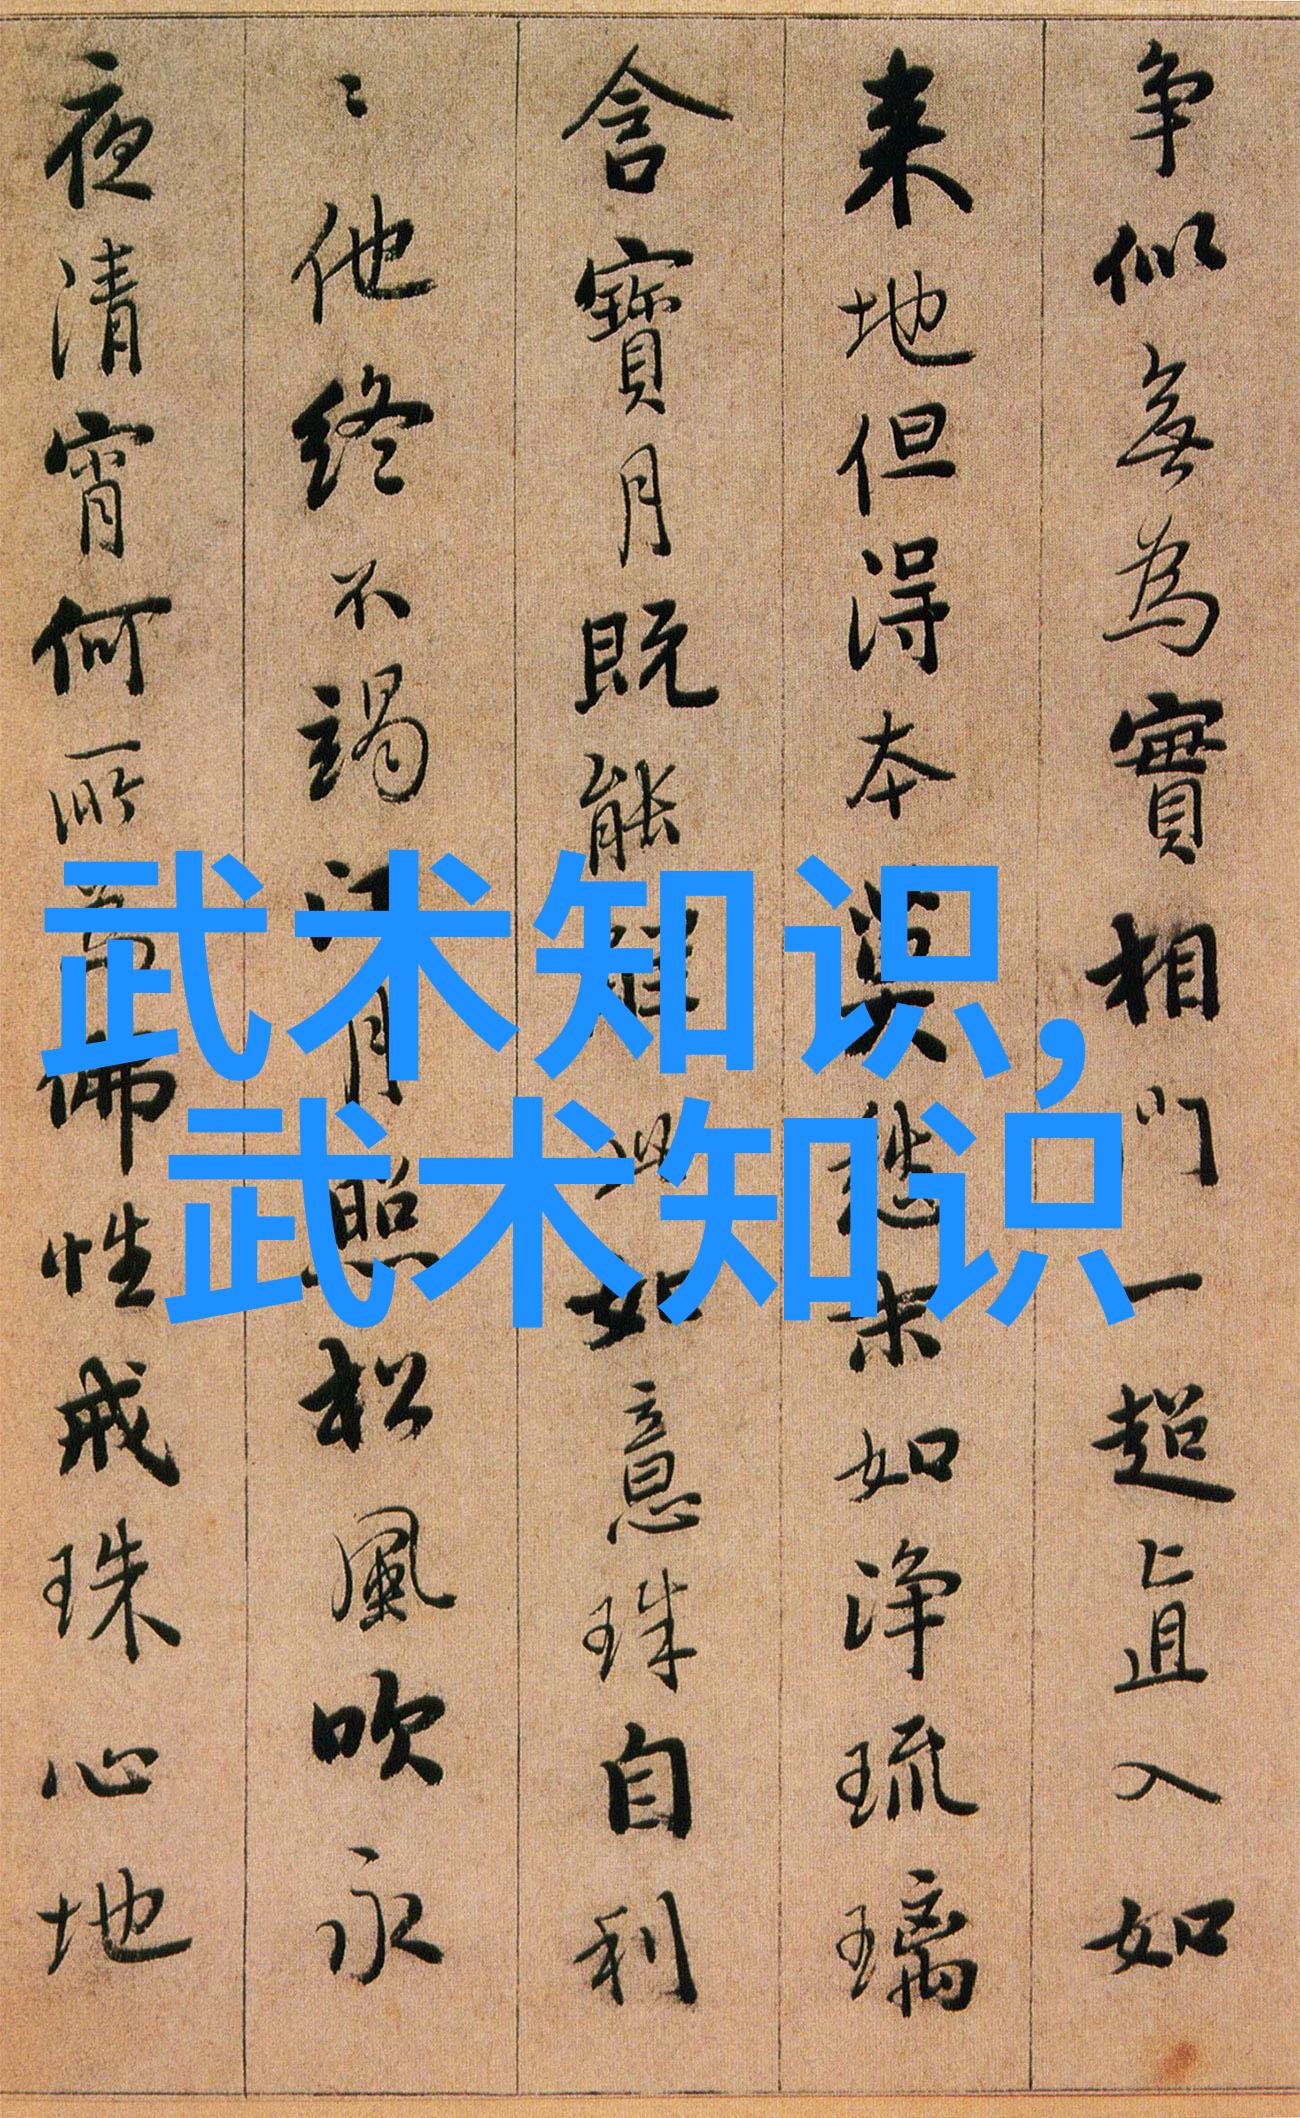 争似無為實相門一超直入如
来地但得本莫愁末如浄琉璃
含寶月既能解此如意珠自利
〻他終不竭江月照松風吹永
夜清宵何所為佛性戒珠心地
武术知识,
武术知识